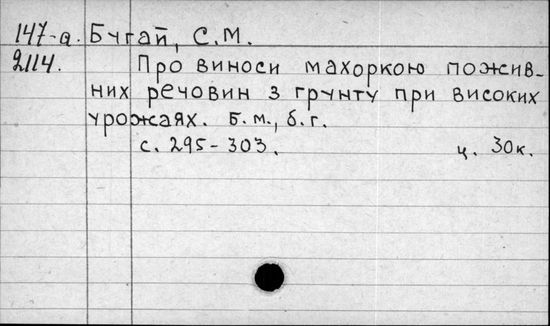 147-а. Бугай, С.М.
2114. Про виноси махоркою пожив-
них речовин з грунту при високих
урожаях. Б.м., б.г.
с. 295-303. ц. 30к.